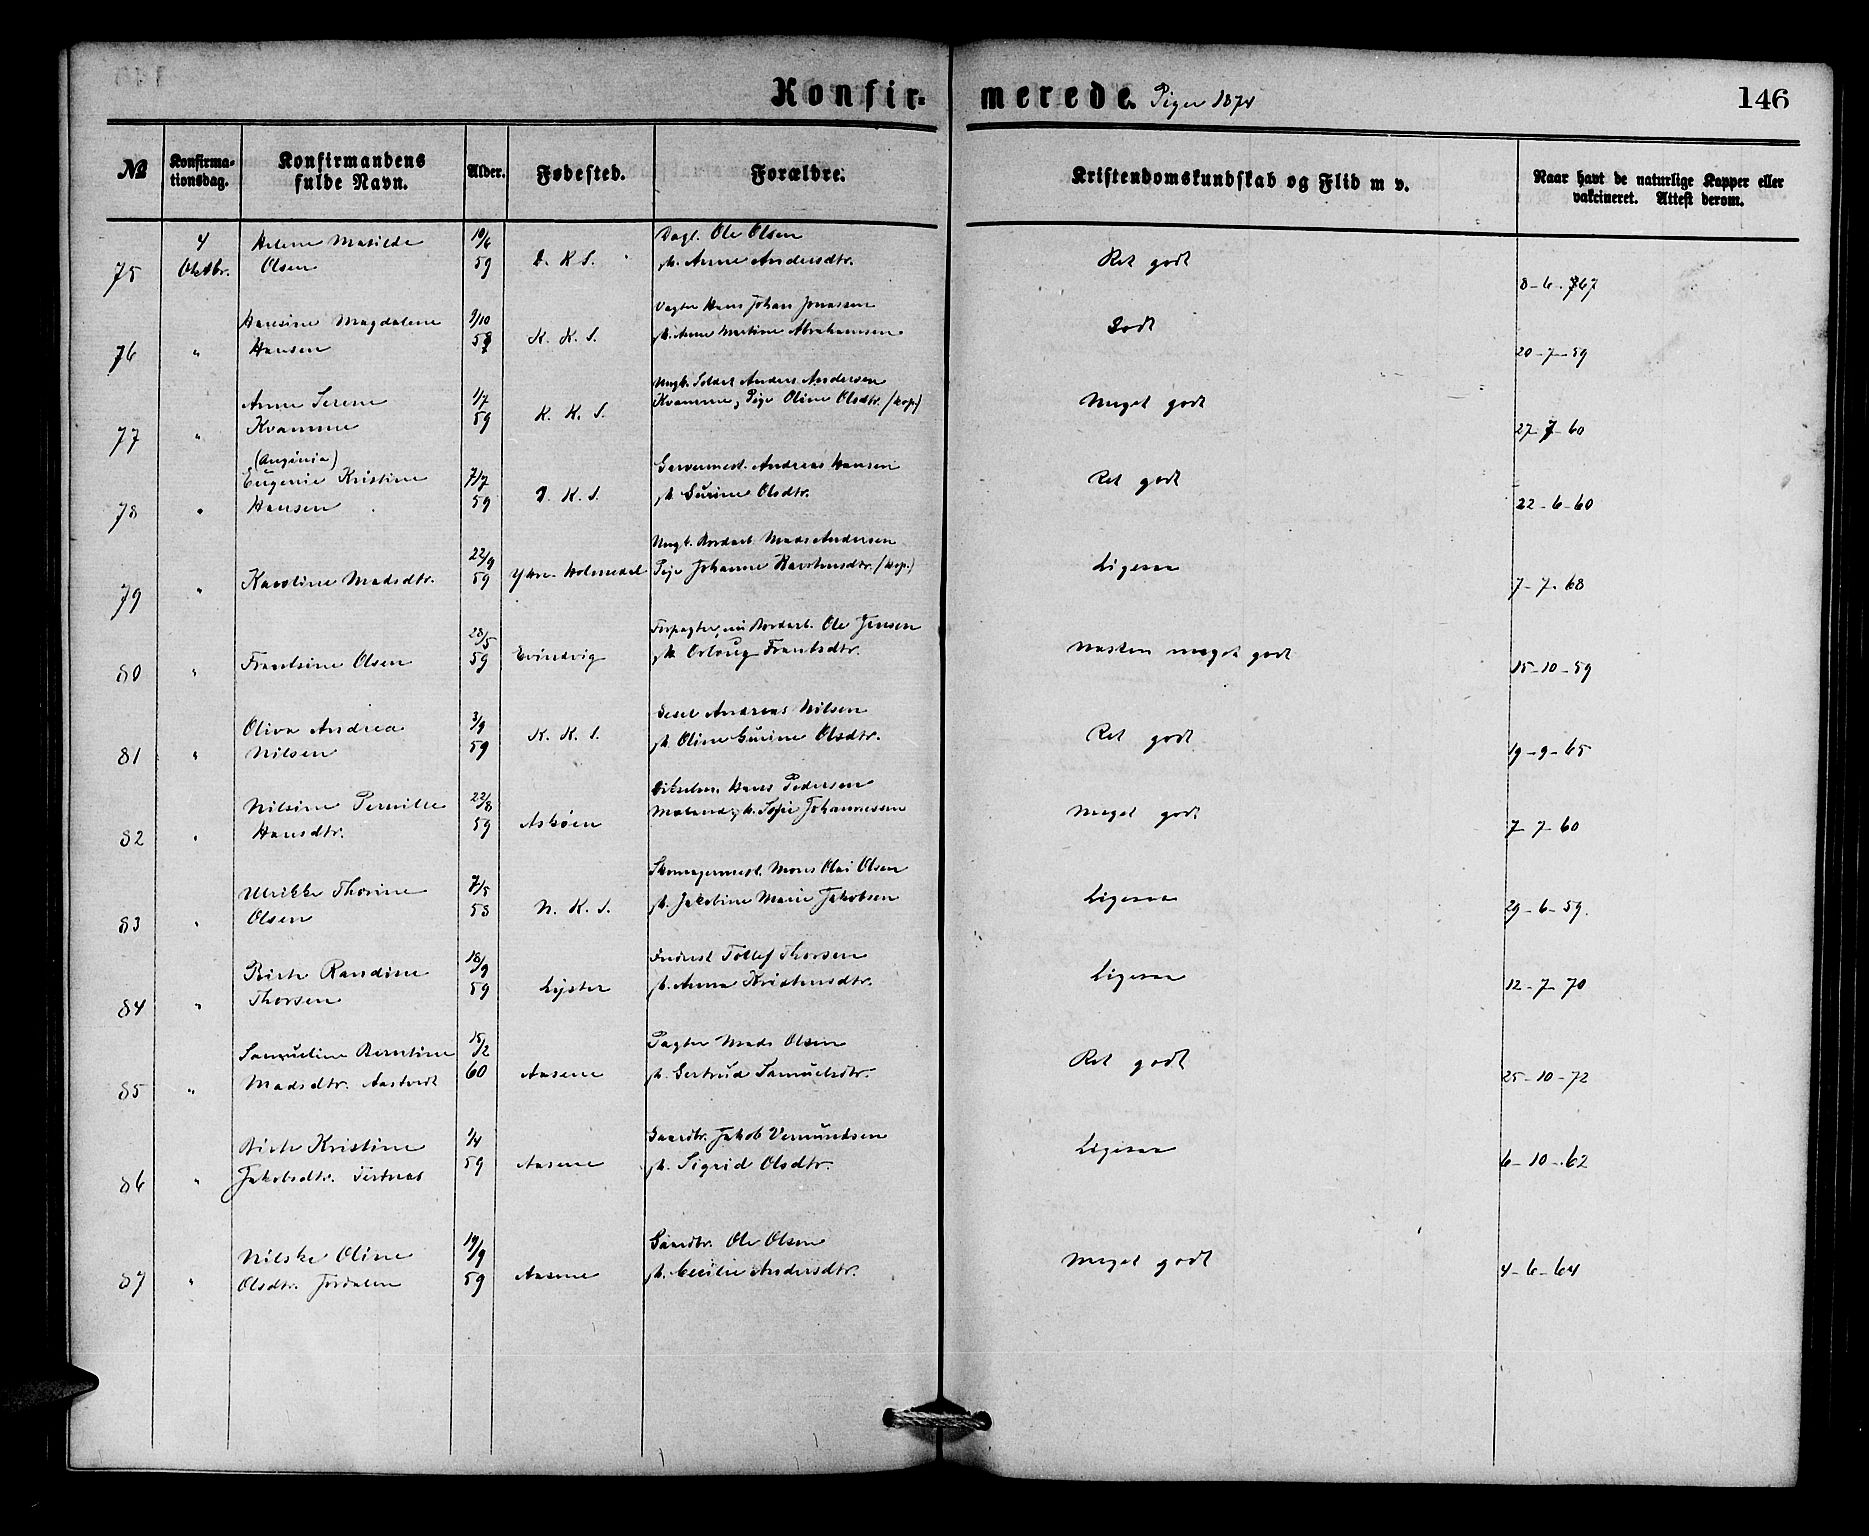 Konfirmerede. Piger 1874
146
№ Konfirmationsdag. Konfirmandens fulde Navn. Alder. Fødested. Forældre. Kristendomskundskab og Flid m v. Naar havt de naturlige Kopper eller vakcineret. Attest derom.
4 Helene Matilde 19/6 Dagl. Ole Olsen
75 Oktbr. Olsen 59 D. K. S. Anne Andersdtr. Ret godt 8-6-67
Hansine Magdalene 9/10 Vægter Hans Johan Jonassen
76 " Hansen 59 K. K. S. Anne Martine Abrahamsen Godt 20-7-59
Anne Serene 1/7 Ungk. Soldat Anders Andersen
77 " Kvamme 59 K. K. S. Kvamme, Pige Oline Olsdtr. (kop) Meget godt 27-7-60
(Anginia)
Eugenie Kristine 7/7 Garvermest. Andreas Hansen
78 " Hansen 59 D. K. S. Gurine Olsdtr. Ret godt 22-6-60
22/9 Ungk. Bordarb. Mads Andersen
79 " Karoline Madsdtr. 59 Ytre-Holmedal Pige Johanne Karstensdtr. (kop.) Ligesaa 7-7-68
28/5 Forpagter, nu Bordarb. Ole Jensen
80 " Frantsine Olsen 59 Evindvig Frantsdtr. Næsten meget godt 15-10-59
Oliva Andrea 3/9 Gesel Andreas Nilsen
81 " Nilsen 59 K. K. S. Oline Gurine Olsdtr. Ret godt 19-9-65
Nilsine Pernille 22/8 Hans Pedersen
82 " Hansdtr. 59 Askøen Sofie Johannessen Meget godt 7-7-60
Ulrikke Thorine 7/5 Skomagermest. Mons Olai Olsen
83 " Olsen 58 N. K. S. Jakobine Marie Jakobsen Ligesaa 29-6-59.
Birte Randine 18/9 Inderst Tollef Thorsen
84 " Thorsen 59 Lyster Anna Kristensdtr. Ligesaa 12-7-70
Samueline Berntine 15/2 Pagter Mads Olsen
85 " Madsdtr. Aastvedt 60 Aasene Gertrud Samuelsdtr. Ret godt 25-10-72
Birte Kristine 1/4 Gaardbr. Jakob Vemundsen
86 " Jakobsdtr. Tertnes 59 Aasene Sigrid Olsdtr. Ligesaa 6-10-62
Nilske Oline 19/9 Gaardbr. Ole Olsen
87 " Olsdtr. Jordalen 59 Aasene Cecilie Andersdtr. Meget godt 4-6-64